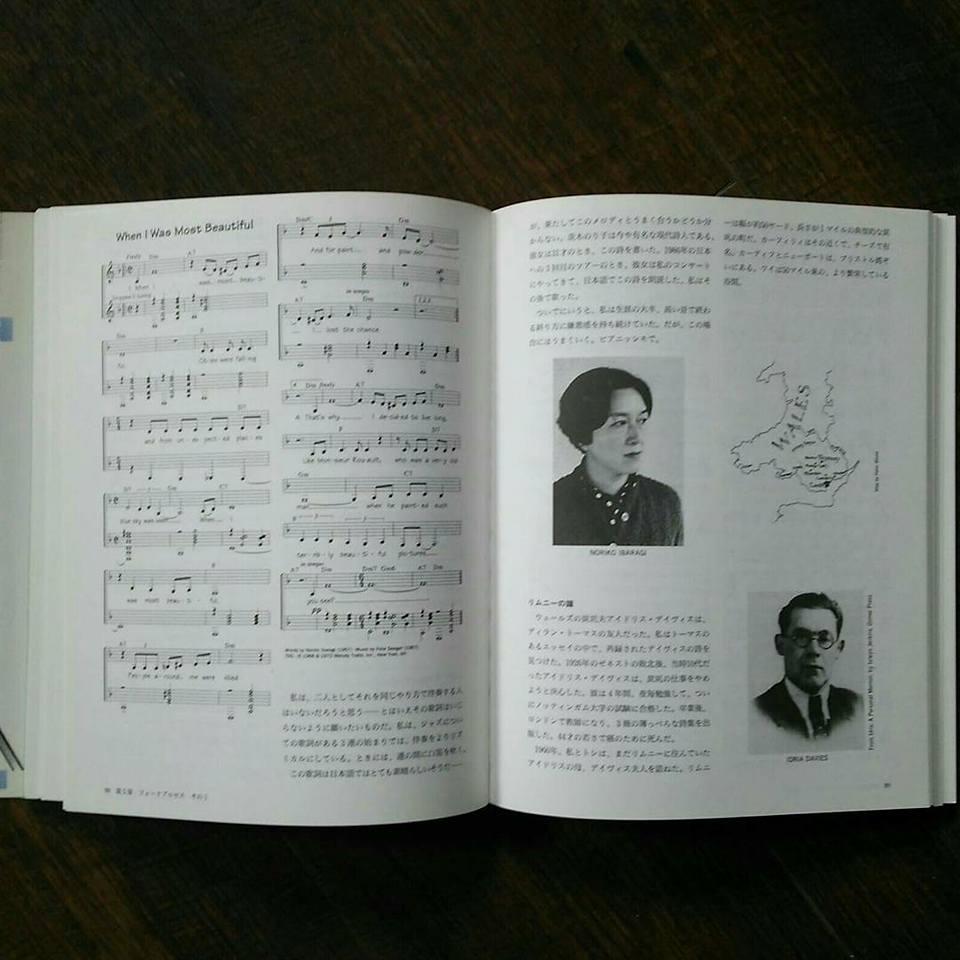 When I Was Most Beautiful
Freely
When I was most beau-ti-
ful,
Cit-ies were fall-ing
and from un-ex-pect-ed plac-es
Blue sky was seen. When I
was most beau-ti-ful,
Peo-ple a-round me were killed
And for paint and pow-der
I lost the chance.
4. That's why I de-cid-ed to live long,
Like Mon-sieur Rou-ault, who was a ver-y old
man when he paint-ed such
ter-ri-bly beau-ti-ful pic-tures.
you see?
私は、二人としてそれを同じやり方で伴奏する人
はいないだろうと思う――とはいえその歌詞はいじ
らないように願いたいものだ。私は、ジャズについ
ての歌詞がある3連の始まりでは、伴奏をよりリズ
ミカルにしている。ときには、連の間に口笛を吹く。
この歌詞は日本語ではとても素晴らしいそうだ――
90 第5章 フォークプロセス その1
が、果たしてこのメロディとうまく合うかどうか分
からない。茨木のり子は今や有名な現代詩人である。
への3回目のツアーのとき、彼女は私のコンサート
にやってきて、日本語でこの詩を朗読した。私はそ
の後で歌った。
ついでにいうと、私は生涯の大半、長い音で終わ
る終り方に嫌悪感を持ち続けていた。だが、この場
合にはうまくいく。ピアニッシモで。
NORIKO IBARAGI
リムニーの鐘
ウェールズの炭坑夫アイドリス・デイヴィスは、
ディラン・トーマスの友人だった。私はトーマスの
あるエッセイの中で、再録されたデイヴィスの詩を
見つけた。1926年のゼネストの敗北後、当時10代だ
ったアイドリス・デイヴィスは、炭坑の仕事をやめ
ようと決心した。彼は4年間、夜毎勉強して、つい
にノッティンガム大学の試験に合格した。卒業後、
ロンドンで教師になり、3冊の薄っぺらな詩集を出
版した。44才の若さで癌のために死んだ。
1966年、私とトシは、まだリムニーに住んでいた
アイドリスの母、デイヴィス夫人を訪ねた。リムニ
ーは幅が約50ヤード、長さが1マイルの典型的な炭
坑の町だ。カーフィリィはその近くで、チーズで有
名。カーディフとニューポートは、ブリストル湾ぞ
いにある。ワイは50マイル東の、より繁栄している
谷間。
WALES
IDRIS DAVIES